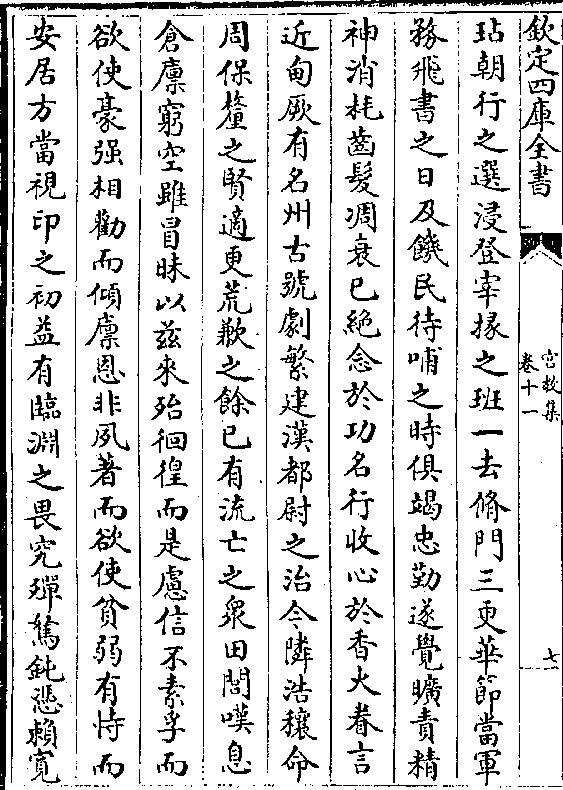 欽定四庫全書
宫教集
卷十一
七
玷朝行之選浸登宰掾之班一去脩門三更華節當軍
務飛書之日及饑民待哺之時俱竭忠勤遂覺曠責精
神消耗齒髮凋衰已絶念於功名行收心於香火眷言
近甸厥有名州古號劇繁建漢都尉之治今隣浩穰命
周保釐之賢適更荒歉之餘已有流亡之衆田閭嘆息
倉廪窮空雖冒昧以兹來殆徊徨而是慮信不素孚而
欲使豪强相勸而傾廪恩非夙著而欲使貧弱有恃而
安居方當視印之初益有臨淵之畏究殫駑鈍慿賴寛